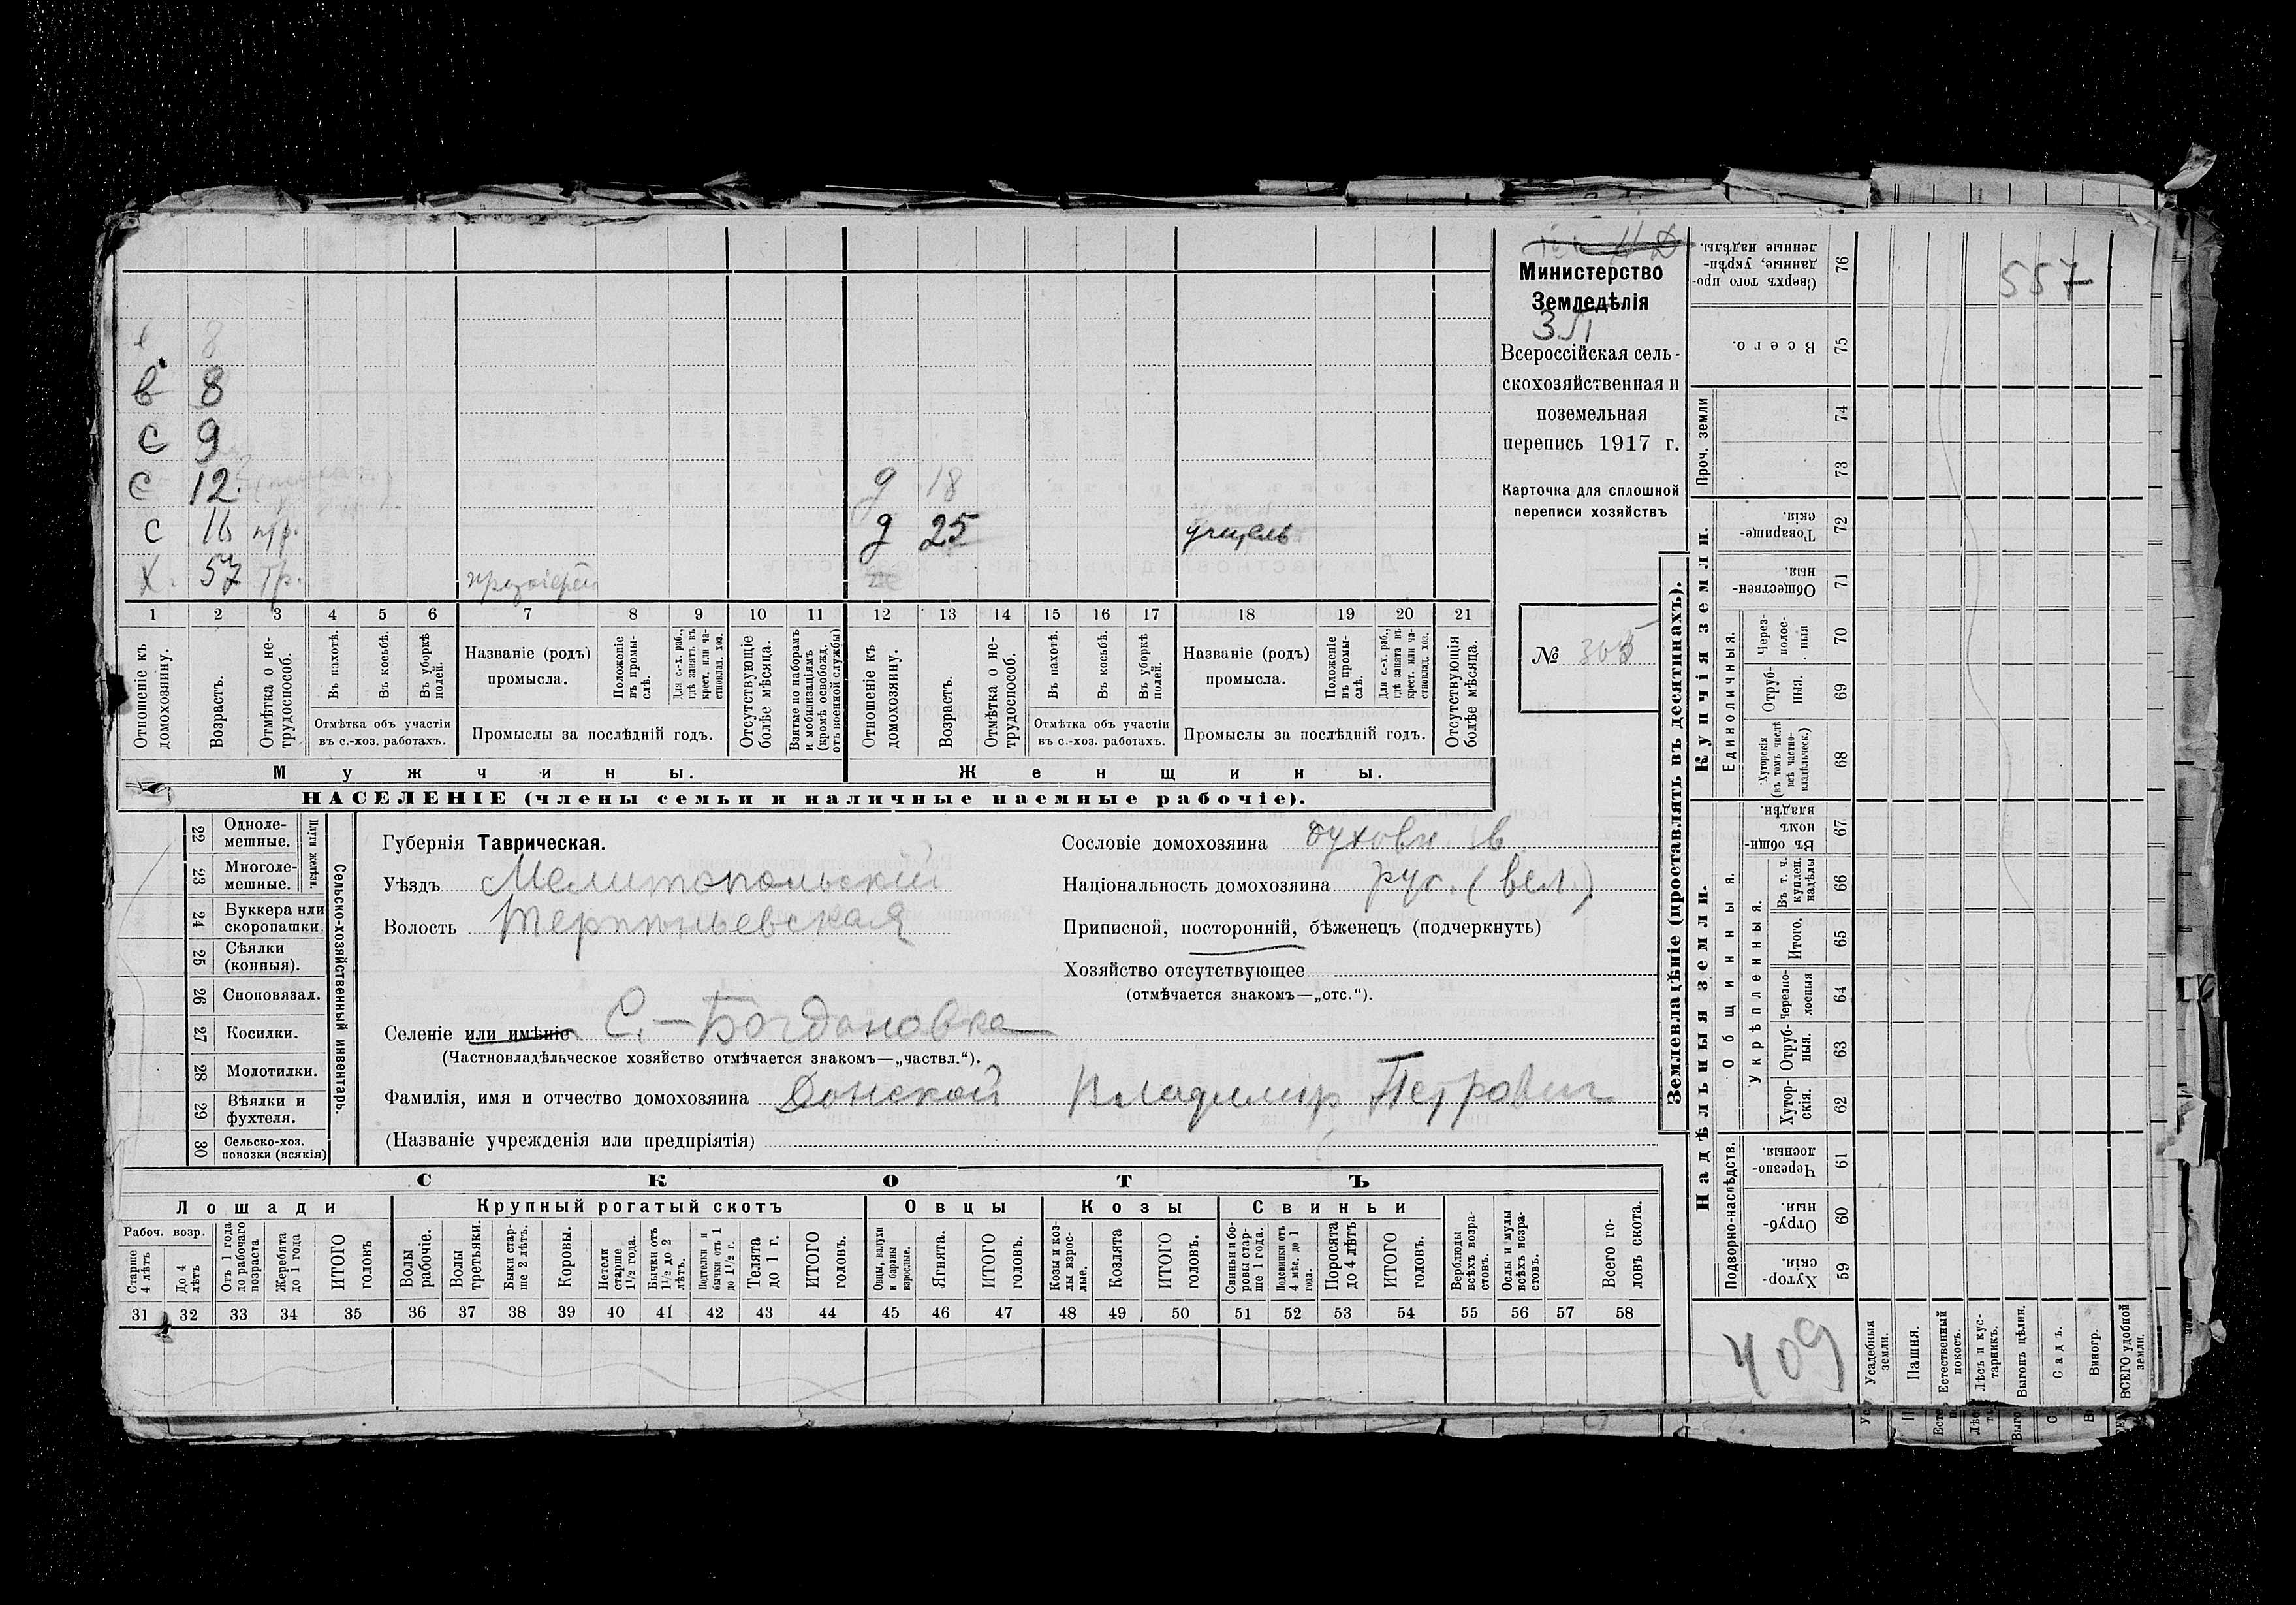 Министерство
Земледѣлія
Всероссійская сель-
скохозяйственная и
поземельная
перепись 1917 г.
Карточка для сплошной
переписи хозяйствъ
№ 305
в 8
в 8
с 9
с 12.
д 18
с 16
д 25
х. 57
1 2 3 4 5 6 7 8 9 10 11 12 13 14 15 16 17 18 19 20 21
Отношеніе къ домохозяину.
Возрастъ.
Отмѣтка о не-трудоспособ.
Въ пахотѣ.
Въ косьбѣ.
Въ уборкѣ полей.
Отмѣтка объ участіи
въ с.-хоз. работахъ.
Названіе (родъ)
промысла.
Положеніе въ промы-слѣ.
Для с.-х. раб., гдѣ занятъ въ крест. или ча-стновлад. хоз.
Промыслы за послѣдній годъ.
Отсутствующіе болѣе мѣсяца.
Взятые по наборамъ и мобилизаціямъ (кромѣ освобожд. отъ военной службы)
Отношеніе къ домохозяину.
Возрастъ.
Отмѣтка о не-трудоспособ.
Въ пахотѣ.
Въ косьбѣ.
Въ уборкѣ полей.
Отмѣтка объ участіи
въ с.-хоз. работахъ.
Названіе (родъ)
промысла.
Положеніе въ промы-слѣ.
Для с.-х. раб., гдѣ занята въ крест. или ча-стновлад. хоз.
Промыслы за послѣдній годъ.
Отсутствующія болѣе мѣсяца.
Мужчины.
Женщины.
НАСЕЛЕНІЕ (члены семьи и наличные наемные рабочіе).
Сельско-хозяйственный инвентарь.
Плуги желѣзн.
22 Одноле-мешные.
23 Многоле-мешные.
24 Буккера или скоропашки.
25 Сѣялки (конныя).
26 Сноповязал.
27 Косилки.
28 Молотилки.
29 Вѣялки и фухтеля.
30 Сельско-хоз. повозки (всякія)
Губернія Таврическая.
Уѣздъ Мелитопольскій
Волость Терпеньевская
Сословіе домохозяина духовн.
Національность домохозяина рус. (вел.)
Приписной, посторонній, бѣженецъ (подчеркнуть)
Хозяйство отсутствующее
(отмѣчается знакомъ—„отс.“).
Селеніе или имѣніе С.-Богдановка
(Частновладѣльческое хозяйство отмѣчается знакомъ—„частвл.“).
Фамилія, имя и отчество домохозяина Донской Владимир Петрович
(Названіе учрежденія или предпріятія)
СКОТЪ
Лошади
Крупный рогатый скотъ
Овцы
Козы
Свиньи
Рабоч. возр.
Старше 4 лѣтъ
До 4 лѣтъ
Отъ 1 года до рабочаго возраста
Жеребята до 1 года
ИТОГО головъ
Волы рабочіе.
Волы третьяки.
Быки стар-ше 2 лѣтъ.
Коровы.
Нетели старше 1½ года.
Бычки отъ 1½ до 2 лѣтъ.
Подтелки и бычки отъ 1 до 1½ г.
Телята до 1 г.
ИТОГО головъ.
Овцы, валухи и бараны взрослые.
Ягнята.
ИТОГО головъ.
Козы и коз-лы взрос-лые.
Козлята
ИТОГО головъ.
Свиньи и бо-ровы стар-ше 1 года.
Подсвинки отъ 4 мѣс. до 1 года.
Поросята до 4 лѣтъ
ИТОГО головъ.
Верблюды всѣхъ возра-стовъ.
Ослы и мулы всѣхъ возра-стовъ.
Всего го-ловъ скота.
31 32 33 34 35 36 37 38 39 40 41 42 43 44 45 46 47 48 49 50 51 52 53 54 55 56 57 58
Землевладѣніе (проставлять въ десятинахъ).
557
76 Сверхъ того про-данные, укрѣп-ленные надѣлы.
75 Всего.
Проч. земли
74
73
Купчія земли.
72 Товарище-скія.
71 Обществен-ныя.
Единоличныя.
70 Через-полос-ныя
69 Отруб-ныя.
68 Хуторскія (въ томъ числѣ всѣ частно-владѣльческ.)
Надѣльныя земли.
Общинныя.
67 Въ общи-номъ владѣн.
Укрѣпленныя.
66 Въ т. ч. куплен. надѣлы
65 Итого.
64 Черезпо-лосныя
63 Отруб-ныя.
62 Хутор-скія.
Подворно-наслѣдств.
61 Черезпо-лосныя.
60 Отруб-ныя.
59 Хутор-скія.
409
Усадебныя земли.
Пашня.
Естественный покосъ.
Лѣсъ и кус-тарникъ.
Выгонъ цѣлин.
Садъ.
Виногр.
ВСЕГО удобной земли.